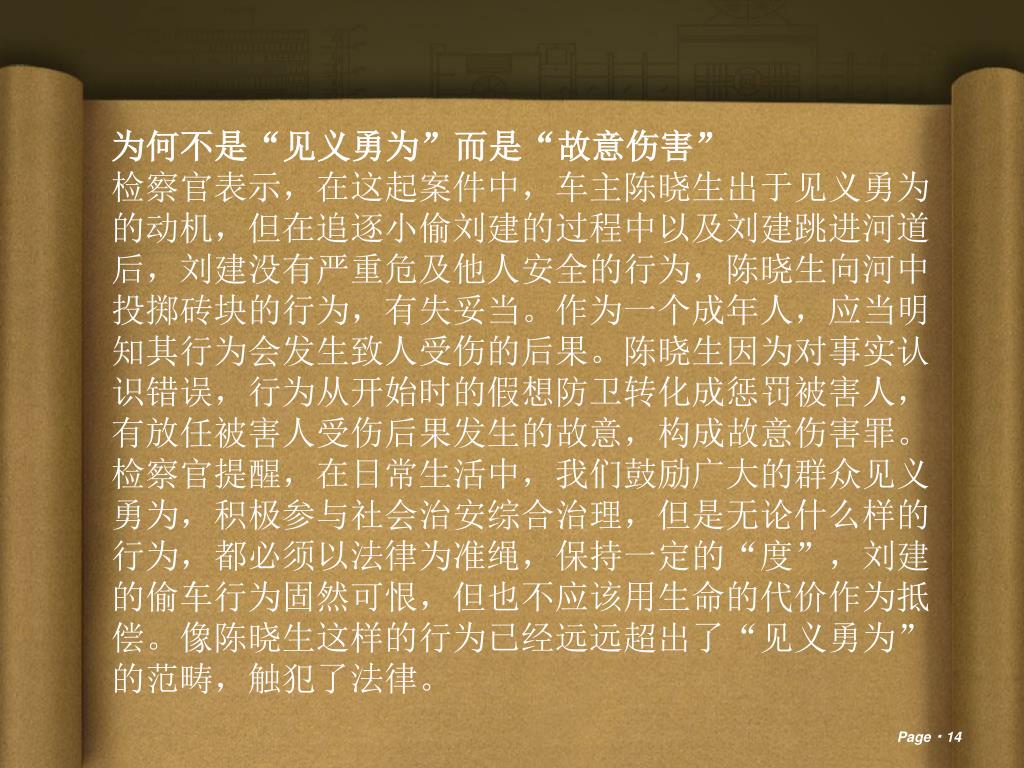 为何不是“见义勇为”而是“故意伤害”
检察官表示，在这起案件中，车主陈晓生出于见义勇为
的动机，但在追逐小偷刘建的过程中以及刘建跳进河道
后，刘建没有严重危及他人安全的行为，陈晓生向河中
投掷砖块的行为，有失妥当。作为一个成年人，应当明
知其行为会发生致人受伤的后果。陈晓生因为对事实认
识错误，行为从开始时的假想防卫转化成惩罚被害人，
有放任被害人受伤后果发生的故意，构成故意伤害罪。
检察官提醒，在日常生活中，我们鼓励广大的群众见义
勇为，积极参与社会治安综合治理，但是无论什么样的
行为，都必须以法律为准绳，保持一定的“度”，刘建
的偷车行为固然可恨，但也不应该用生命的代价作为抵
偿。像陈晓生这样的行为已经远远超出了“见义勇为”
的范畴，触犯了法律。
Page ▪ 14